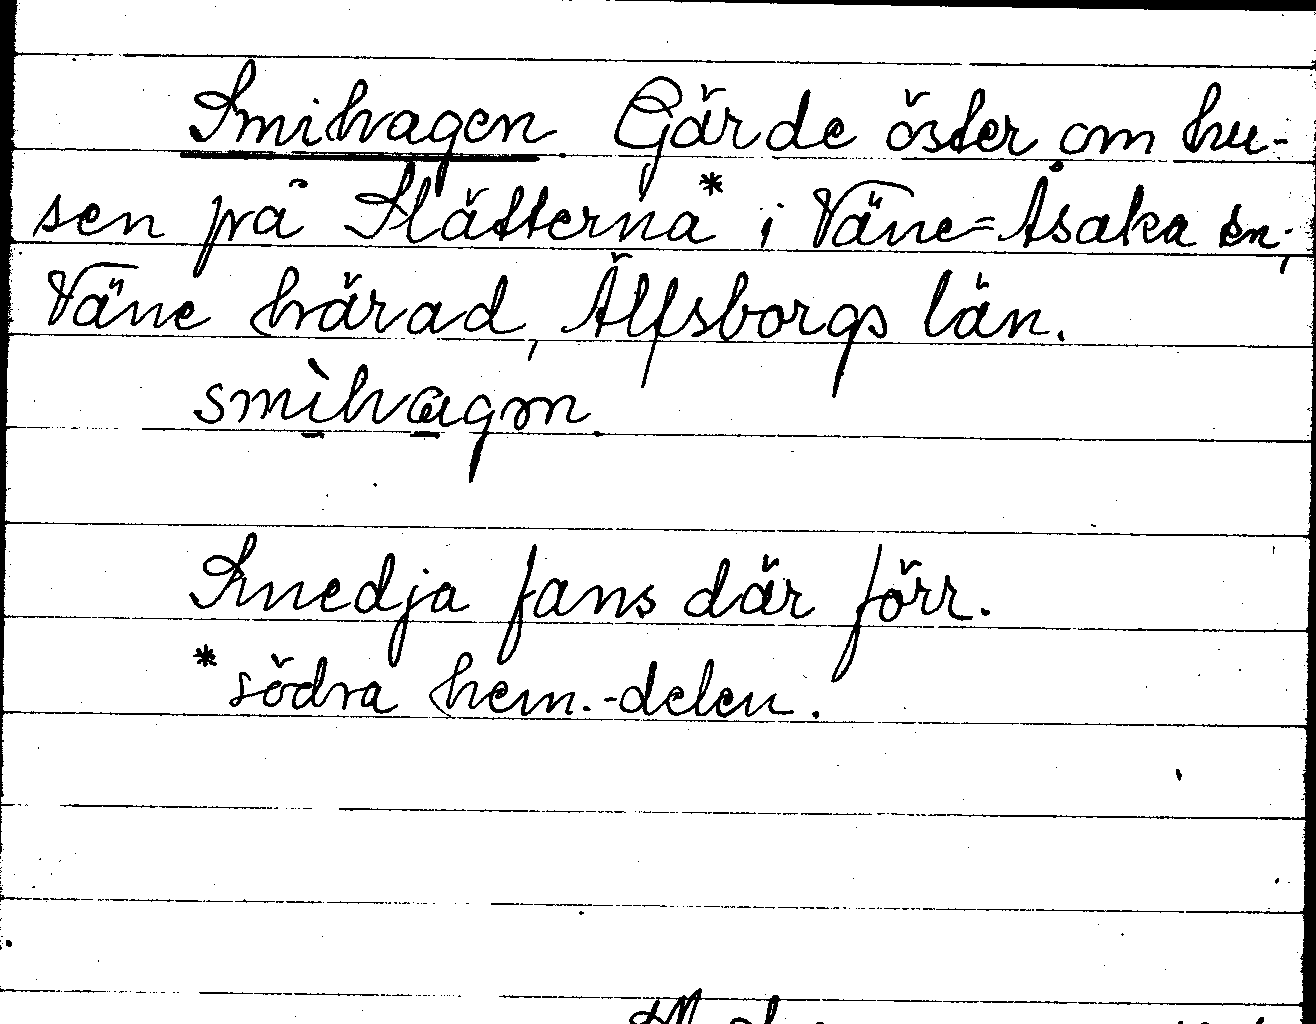 Smihagen. Gärde öster om hu-
sen på Slätterna* i Väne=Åsaka sn,
Väne härad, Älfsborgs län.
smìhagən.
Smedja fans där förr.
*södra hem.-delen.